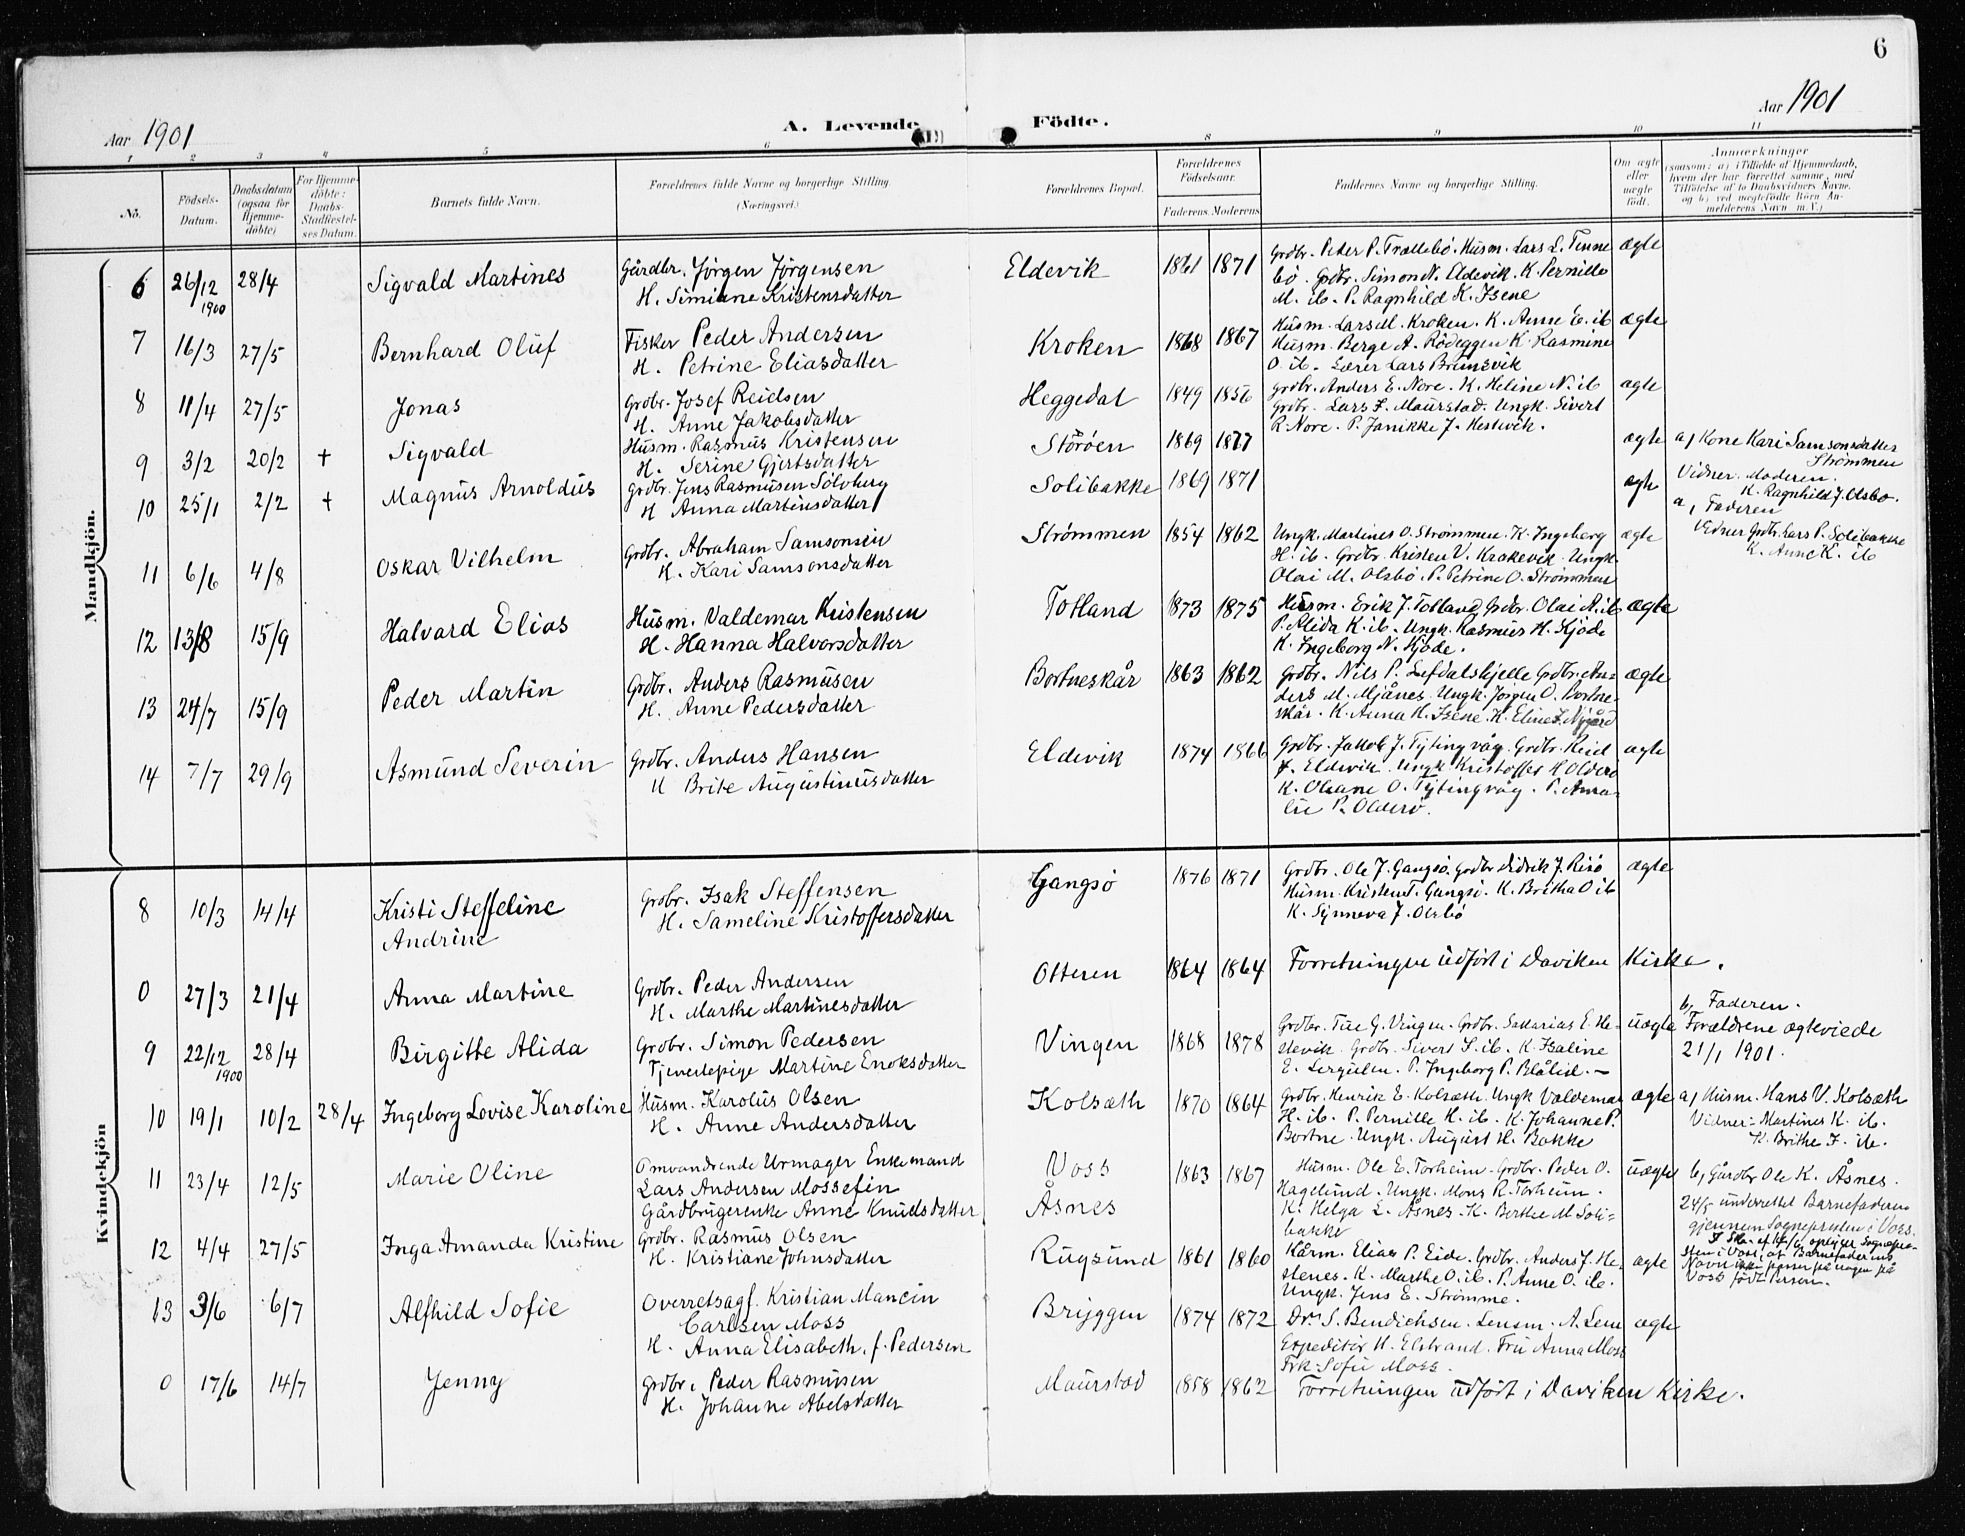 6
Aar 1901
A. Levende
Födte.
Aar 1901
1 2 3 4 5 6 8 9 10 11
No.
Födsels-
Datum.
Daabsdatum
(ogsaa for
Hjemme-
döbte)
For Hjemme-
döbte:
Daabs-
Stadfæstel-
ses Datum.
Barnets fulde Navn.
Forældrenes fulde Navne og borgerlige Stilling.
(Næringsvei.)
Forældrenes Bopæl.
Forældrenes
Födselsaar.
Faderens. Moderens.
Faddernes Navne og borgerlige Stilling.
Om ægte
eller
uægte
födt.
Anmærkninger
(saasom: a) i Tilfælde af Hjemmedaab,
hvem der har forrettet samme, med
Tilföielse af to Daabsvidners Navne.
og b) ved uægtefödte Börn An-
melderens Navn m. V.)
Mandkjön.
6 26/12 1900 28/4 Sigvald Martines
Gårdbr. Jørgen Jørgensen
H. Simiane Kristensdatter
Eldevik 1861 1871
Grdbr. Peter P. Trællebö. Husm. Lars L. Tenne
bö. Grdbr. Simon N. Eldevik. K. Pernille
M. ib. P. Ragnhild K. Isene
ægte
7 16/3 27/5 Bernhard Oluf
Fisker Peder Andersen
H. Petrine Eliasdatter
Kroken 1868 1867
Husm. Lars M. Kroken. K. Anne E. ib
Husm. Berge A. Rödeggen K. Rasmine
O. ib. Lærer Lars Brunsvik
ægte
8 11/4 27/5 Jonas
Grdbr. Josef Reidsen
H. Anne Jakobsdatter
Heggedal 1849 1856
Grdbr. Anders E. Nore. K. Heline N. ib
Grdbr. Lars J. Maurstad. Ungk. Sivert
R. Nore. P. Janikke J. Hestvik.
ægte
9 3/2 20/2 + Sigvald
Husm. Rasmus Kristensen
H. Serine Gjertsdatter
Störöen 1869 1877
ægte
a, Kone Kari Samsonsdatter
Strømmen
Vidner: Moderen.
K. Ragnhild J. Olsbö.
10 25/1 2/2 + Magnus Arnoldus
Grdbr. Jens Rasmusen Sölvberg
H Anna Martinsdatter
Solibakke 1869 1871
ægte
a, Faderen
Vidner Grdbr. Lars P. Solibakke
K. Anne K. ib
11 6/6 4/8 Oskar Vilhelm
Grdbr. Abraham Samsonsen
H. Kari Samsonsdatter
Strømmen 1854 1862
Ungk. Martines O. Strømmen. K. Ingeborg
H. ib. Grdbr. Kristen V. Krokevik. Ungk.
Olai M. Olsbö. P. Petrine O. Strømmen
ægte
12 13/8 15/9 Halvard Elias
Husm. Valdemar Kristensen
H. Hanna Halvorsdatter
Totland 1873 1875
Husm. Erik J. Totland Grdbr. Olai A. ib
P. Alida K. ib. Ungk. Rasmus H. Kjöde
K. Ingeborg N. Kjöde.
ægte
13 24/7 15/9 Peder Martin
Grdbr. Anders Rasmusen
H. Anne Pedersdatter
Bortneskår 1863 1862
Grdbr. Nils P. Lefdalskjelle Grdbr. An-
ders M. Mjånes. Ungk. Jørgen O. Bortne-
skår. K. Anna H. Isene. K. Eline J. Nygård
ægte
14 7/7 29/9 Asmund Severin
Grdbr. Anders Hansen
H Brite Augustinusdatter
Eldevik 1874 1866
Grdbr. Jakob J. Tytingvåg. Grdbr. Reid
J. Eldevik. Ungk. Kristoffer H Olderö
K. Oleane O. Tytingvåg. P. Anna-
lie P. Olderö.
ægte
Kvindekjön
8 10/3 14/4 Kristi Steffeline
Andrine
Grdbr. Isak Steffensen
H. Sameline Kristoffersdatter
Gangsö 1876 1871
Grdbr. Ole J. Gangsö. Grdbr Didrik J. Risö
Husm. Kristen T. Gangsö. K. Britha O ib
K. Synneva J. Olsbö
ægte
0 27/3 21/4 Anna Martine
Grdbr. Peder Andersen
H. Marthe Martinesdatter
Otteren 1864 1864
Forretningen udført i Daviken Kirke.
9 22/12 1900 28/4 Birgitte Alida
Grdbr. Simon Pedersen
Tjenestepige Martine Enoksdatter
Vingen 1868 1878
Grdbr. Tue G. Vingen. Grdbr. Sakkarias E. He-
stevik. Grdbr. Sivert S. ib. K. Isaline
E. P. Ingeborg P. Blålid. –
uægte
b, Faderen.
Forældrene ægteviede
21/1 1901.
10 19/1 10/2 28/4 Ingeborg Lovise Karoline
Husm. Karolus Olsen
H. Anne Andersdatter
Kolsæth 1870 1864
Grdbr. Henrik E. Kolsæth. Ungk Valdemar
H. ib. P. Pernille H. ib. K. Johanne P.
Bortne. Ungk. August H. Bakke
ægte
a, Husm. Hans V. Kolsæth
Vidner: Martines K. ib.
K. Brithe J. ib.
11 23/4 12/5 Marie Oline
Omvandrende Urmager Enkemand
Lars Andersen Mossefin
Gårdbrugerenke Anne Knudsdatter
Voss
Åsnes
1863 1867
Husm. Ole E. Torheim. Grdbr. Peder O.
Hagelund. Ungk. Mons R. Torheim.
K. Helga L. Åsnes. K. Berthe M Soli-
bakke
uægte
b, Gårdbr Ole K. Åsnes.
24/5 underrettet Barnefaderen
gjennem Sognepresten i Voss.
I Skr. af oplyser Sognepre-
sten i Voss, at Barnefaderens
Navn ikke passer på nogen på
Voss født Person.
12 4/4 27/5 Inga Amanda Kristine
Grdbr. Rasmus Olsen
H. Kristiane Johnsdatter
Rugsund 1861 1860
Kårm. Elias P. Eide. Grdbr. Anders J. He-
stenes. K. Marthe O. ib. P. Anne O. ib.
Ungk. Jens E. Strömme.
ægte
13 3/6 6/7 Alfhild Sofie
Overretsagf. Kristian Mancin
Carlsen Moss
H. Anna Elisabeth, f. Pedersen
Bryggen 1874 1872
Dr. S. Bendichsen. Lensm. A. Lem
Expeditör H. Elstrand. Fru Anna Moss
Frk. Sofie Moss.
ægte
0 17/6 14/7 Jenny
Grdbr. Peder Rasmusen
H. Johanne Abelsdatter
Maurstad 1858 1862
Forretningen udført i Daviken Kirke.